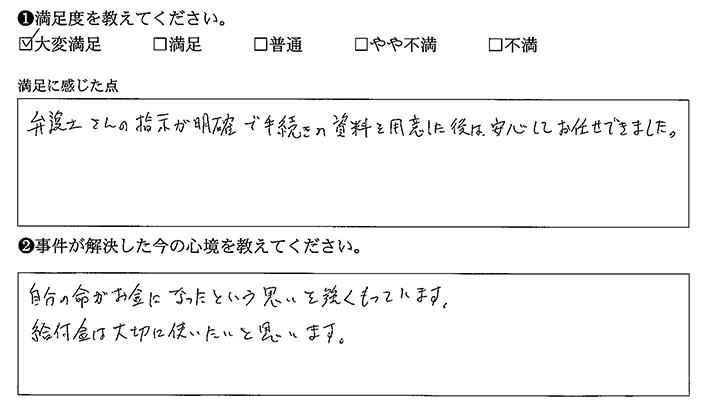 ❶満足度を教えてください。
☑大変満足 □満足 □普通 □やや不満 □不満
満足に感じた点
弁護士さんの指示が明確で手続きの資料を用意した後は、安心してお任せできました。
❷事件が解決した今の心境を教えてください。
自分の命がお金になったという思いを強くもっています。
給付金は大切に使いたいと思います。